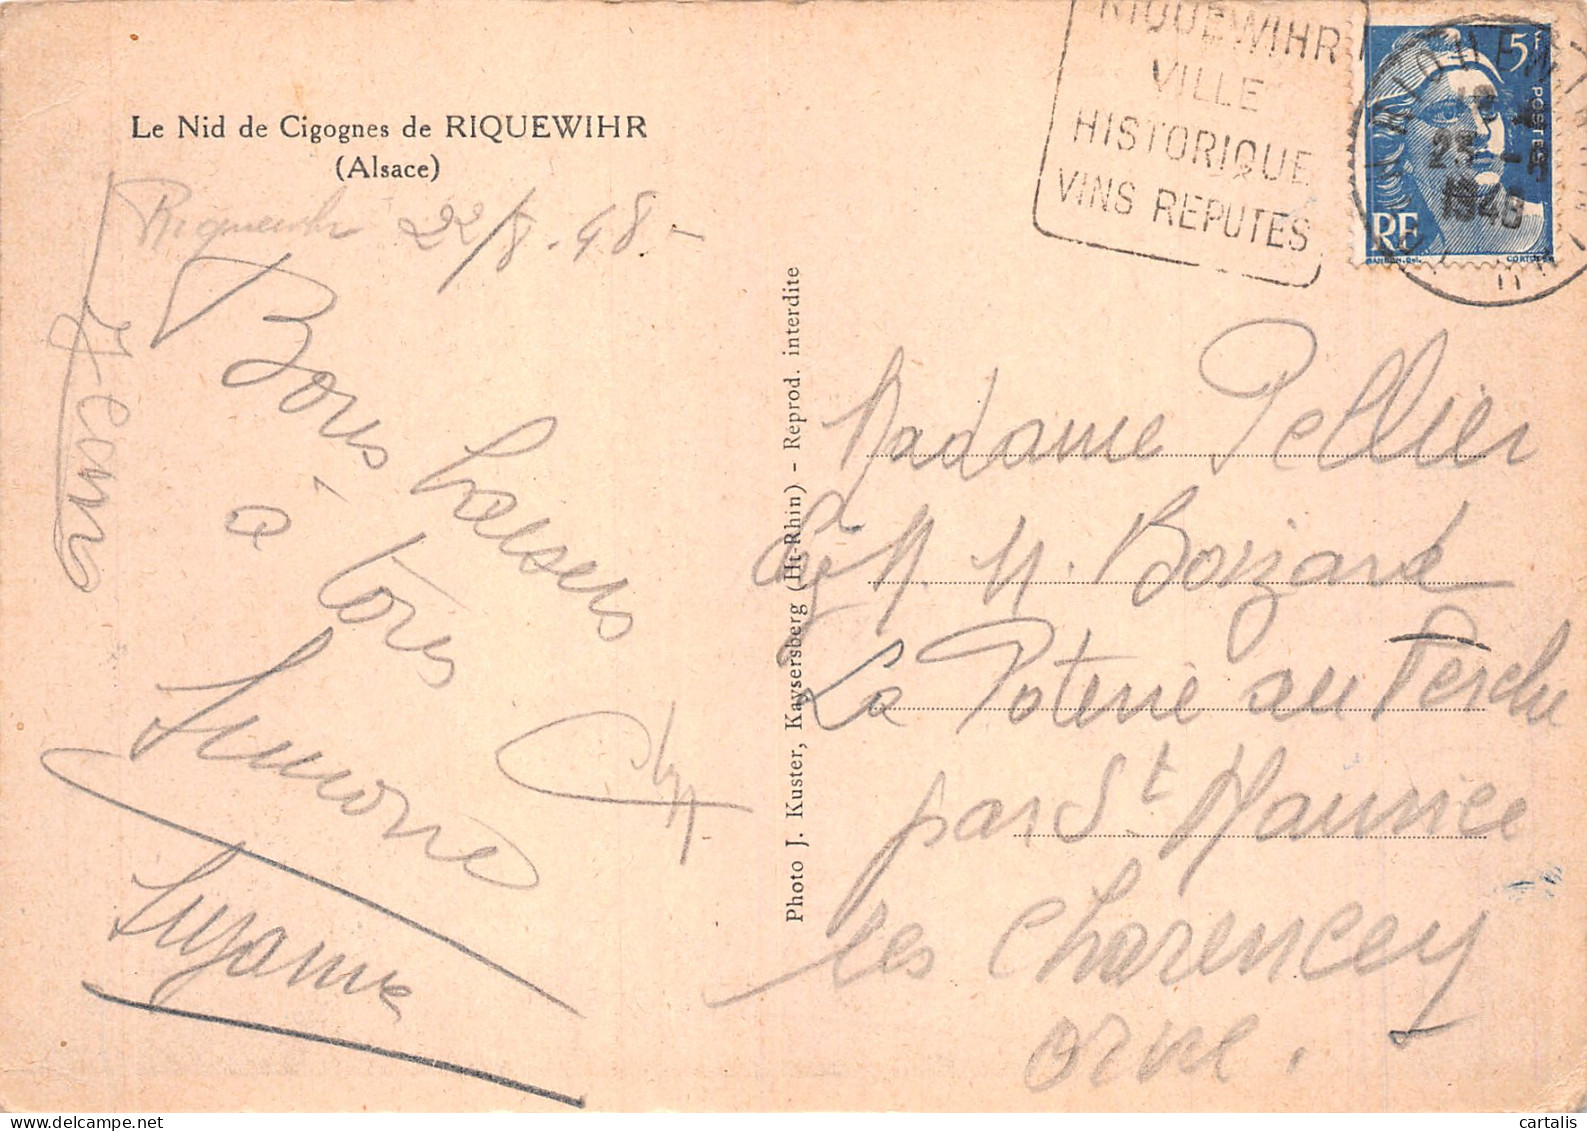 Le Nid de Cigognes de RIQUEWIHR
(Alsace)
Riquewihr 22/8.48.-
Bons baisers
à tous
Simone
Suzanne
Photo J. Kuster, Kaysersberg (Ht-Rhin) - Reprod. interdite
RIQUEWIHR
VILLE
HISTORIQUE
VINS REPUTES
5F
POSTES
RF
1948
Madame Pellier
M. M. Boizard
La Poterie au Perche
par St Maurice
les Charencey
Orne.
cartalis